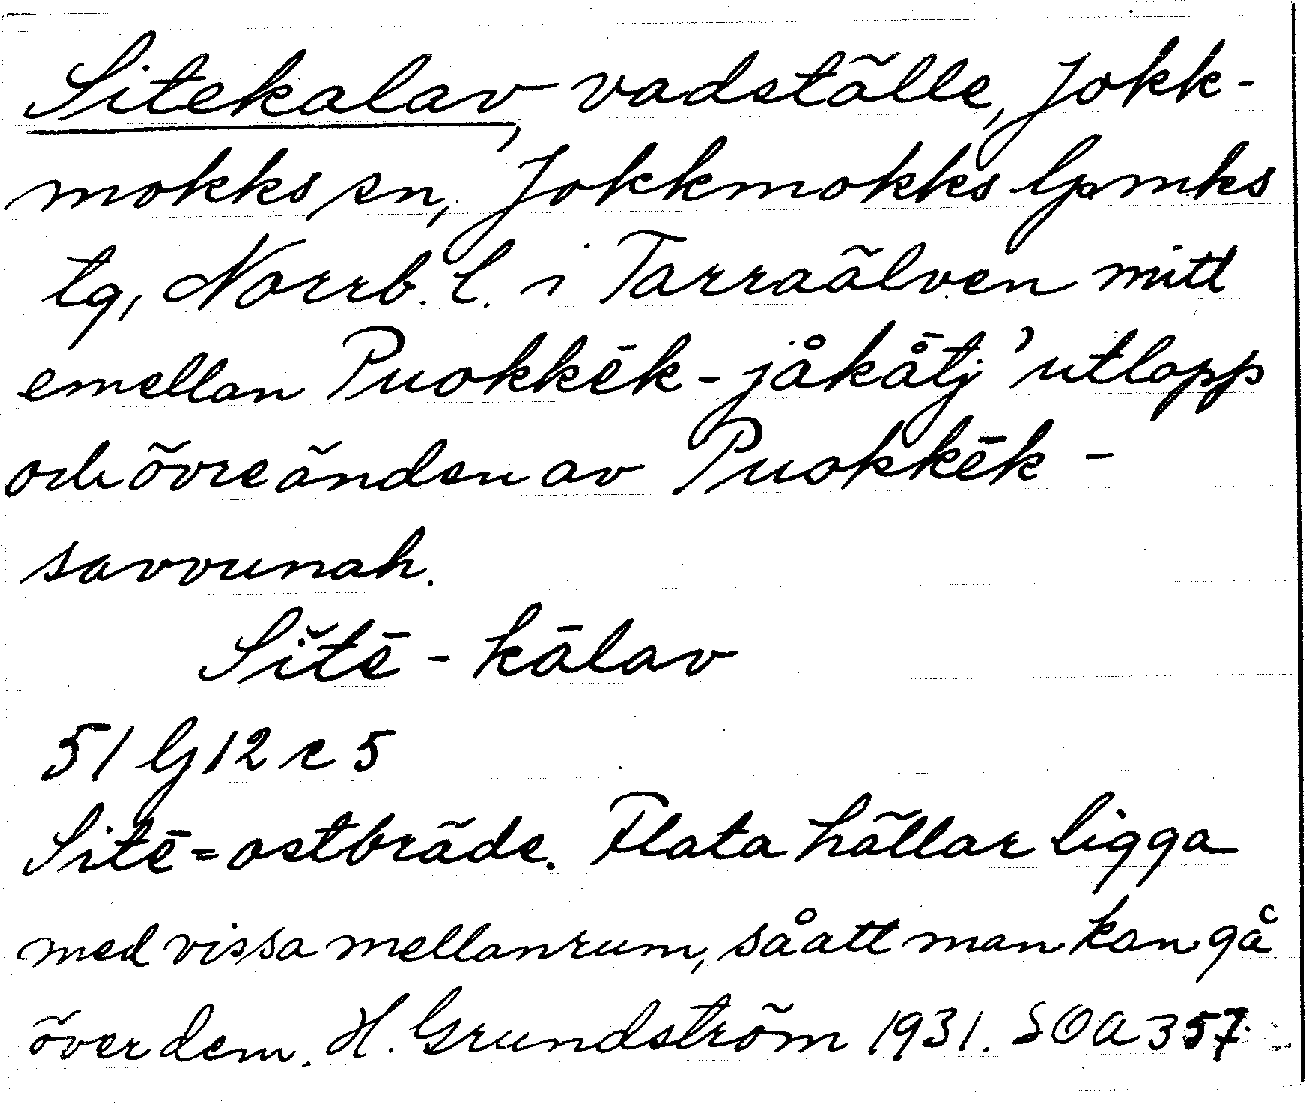 Sitekalav, vadställe, Jokk-
mokks sn, Jokkmokks lpmks
tg, Norrb. l. i Tarraälven mitt
emellan Puokkēk-jåkåtj' utlopp
och övre änden av Puokkēk-
savvunah.
Sĭtē-kālav
51 G 12 c 5
Sitē = ostbräde. Flata hällar ligga
med vissa mellanrum, så att man kan gå
över dem. H. Grundström 1931. SOA 357